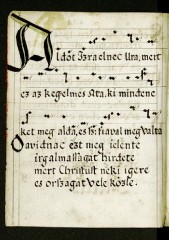 Aldót Izraelnec Ura, mert
ez az kegelmes Ata, ki mindene
ket meg aldá, es fiaval meg valta
Davidnac ezt meg ielente
irgalmassagat hirdete
mert Christust neki igere
es orszagat vele közle.